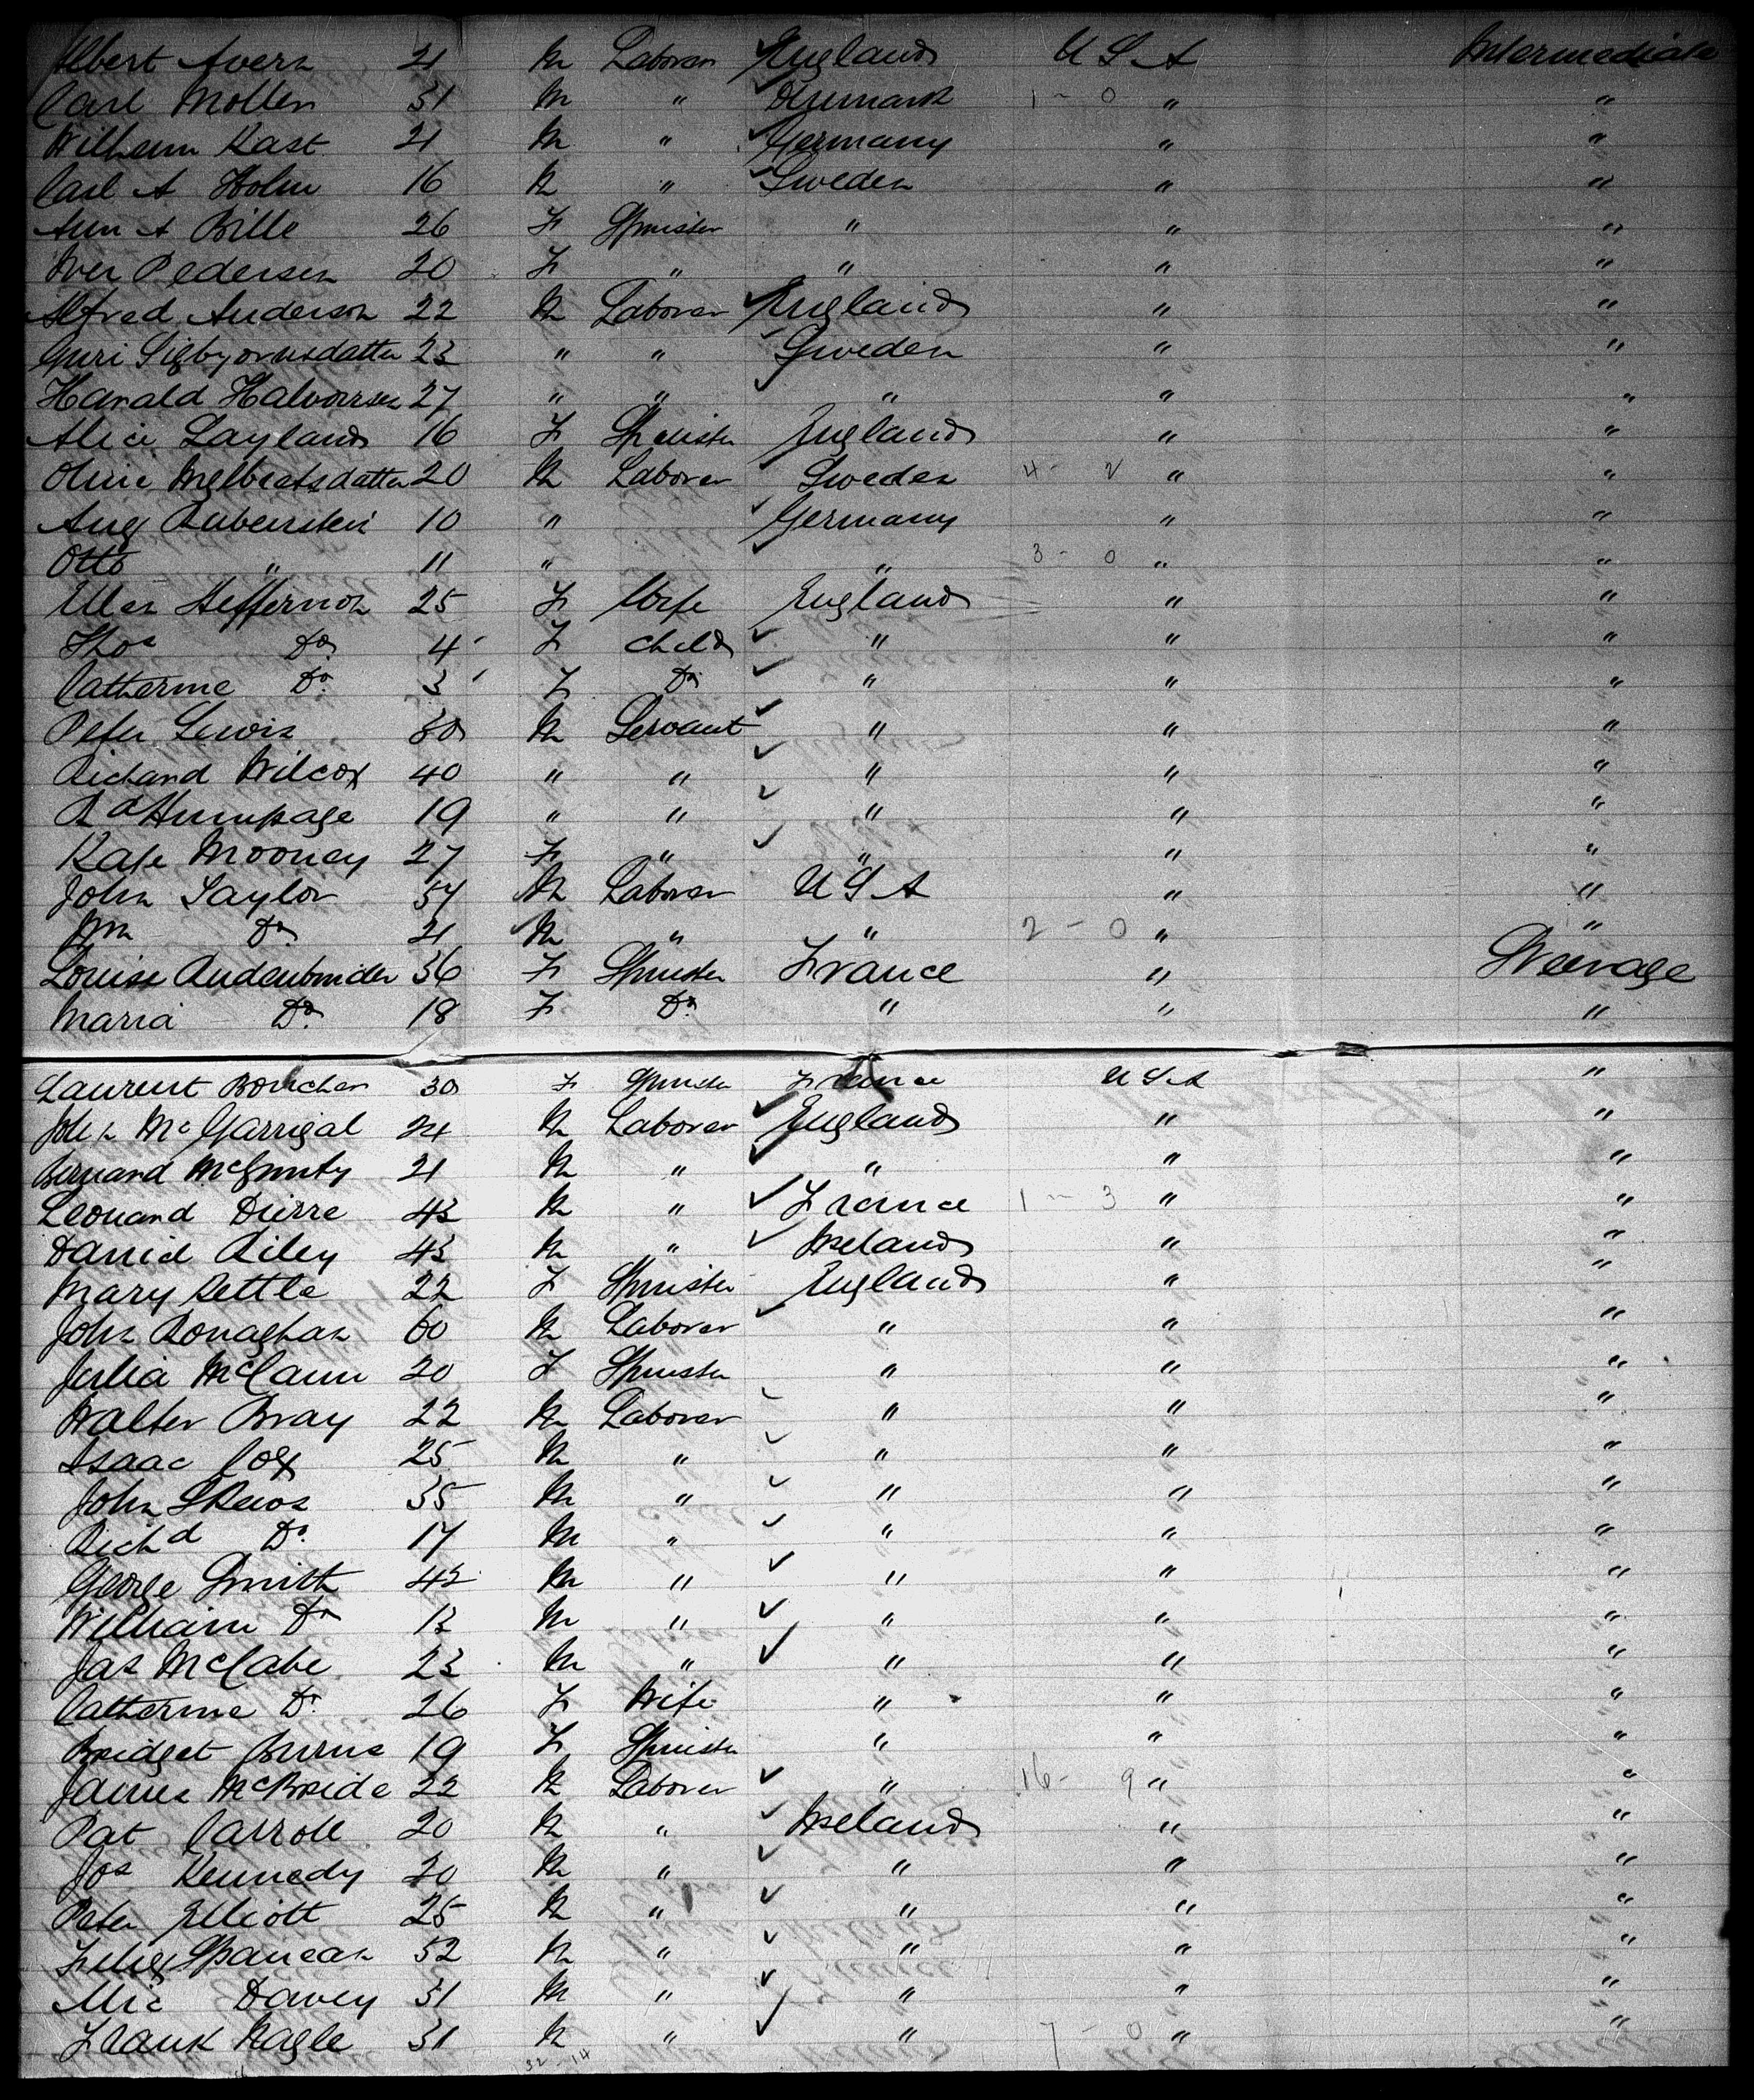 Albert Avern 21 M Laborer England U S A Intermediate
Carl Moller 31 M " Denmark 1 - 0 " "
Wilhelm Kast 21 M " Germany " "
Carl A Holm 16 M " Sweden " "
Ann A Bille 26 F Spinster " " "
Iver Pedersen 20 F " " " "
Alfred Anderson 22 M Laborer England " "
Guri Sigbyornsdatter 23 " " Sweden " "
Harald Halvorsen 27 " " " " "
Alice Layland 16 F Spinster England " "
Oline 20 M Laborer Sweden 4 - 2 " "
Aug Rubenstein 10 " Germany " "
Otto " 11 " " 3 - 0 " "
Ellen Heffernon 25 F Wife England " "
Thos Do 4 F Child " " "
Catherine Do 3 F Do " " "
Peter Lewis 30 M Servant " " "
Richard Wilcox 40 " " " " "
Rd Humpage 19 " " " " "
Kate Mooney 27 F " " " "
John Taylor 54 M Laborer U S A " "
Wm Do 21 M " " 2 - 0 " "
Louise 36 F Spinster France " Steerage
Maria Do 18 F Do " " "
Laurent Boucher 30 F Spinster France U S A "
John McGarrigal 24 M Laborer England " "
Bernard McGinnty 21 M " " " "
Leonard Dierre 43 M " France 1 - 3 " "
Daniel Riley 43 M " Ireland " "
Mary Settle 22 F Spinster England " "
John Ronaghan 60 M Laborer " " "
Julia McCann 20 F Spinster " " "
Walter Bray 22 M Laborer " " "
Isaac Cox 25 M " " " "
John Skews 35 M " " " "
Richd Do 17 M " " " "
George Smith 42 M " " " "
William Do 13 M " " " "
Jas McCabe 23 M " " " "
Catherine Do 26 F Wife " " "
Bridget Burns 19 F Spinster " " "
James McBride 22 M Laborer " 16 - 9 " "
Pat Carroll 20 M " Ireland " "
Jos Kennedy 20 M " " " "
Peter Elliott 25 M " " " "
Felix 52 M " " " "
Mic Davey 31 M " " " "
Frank Nagle 31 M " " 7 - 0 " "
32 - 14